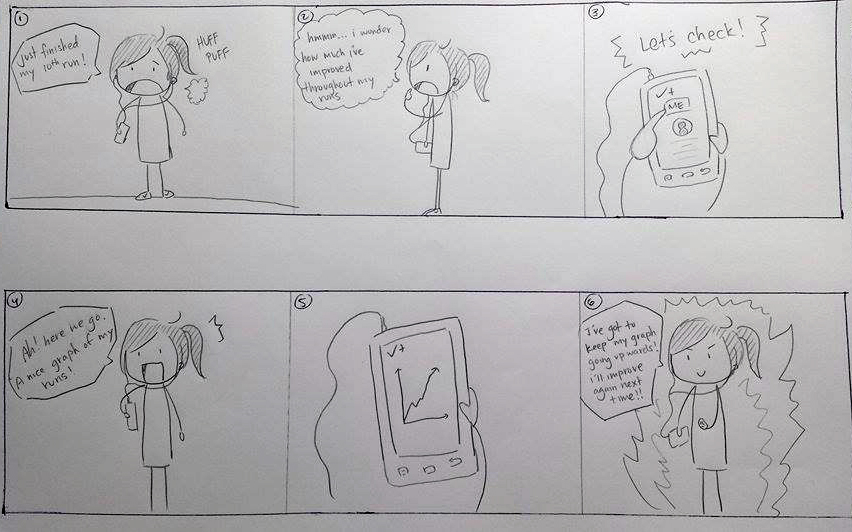 1
just finished
my 10th run!
HUFF
PUFF
2
hmmm... i wonder
how much i've
improved
throughout my
runs
3
Let's check!
✓+
ME
4
Ah! here we go.
A nice graph of my
runs!
5
✓+
6
I've got to
keep my graph
going upwards!
i'll improve
again next
time!!